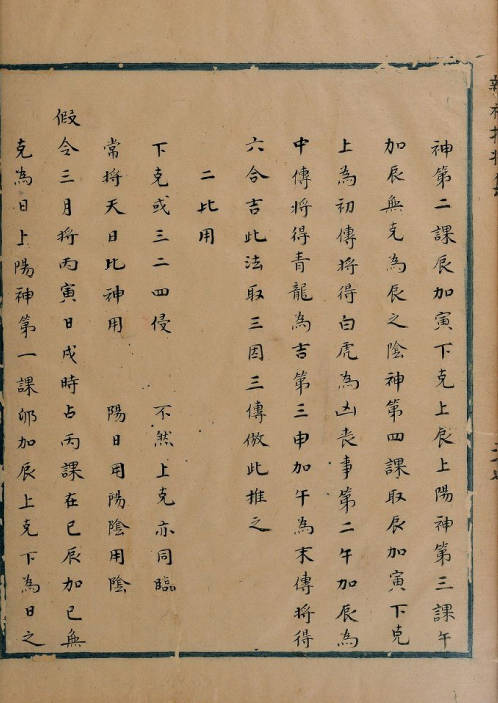 神第二課辰加寅下克上辰上陽神第三課午
加辰無克為辰之陰神第四課取辰加寅下克
上為初傳將得白虎為凶喪事第二午加辰為
中傳將得青龍為吉第三申加午為末傳將得
六合吉此法取三因三傳倣此推之
二比用
下克或三二四侵　不然上克亦同臨
常將天日比神用　陽日用陽陰用陰
假令三月將丙寅日戌時占丙課在巳辰加巳無
克為日上陽神第一課卯加辰上克下為日之